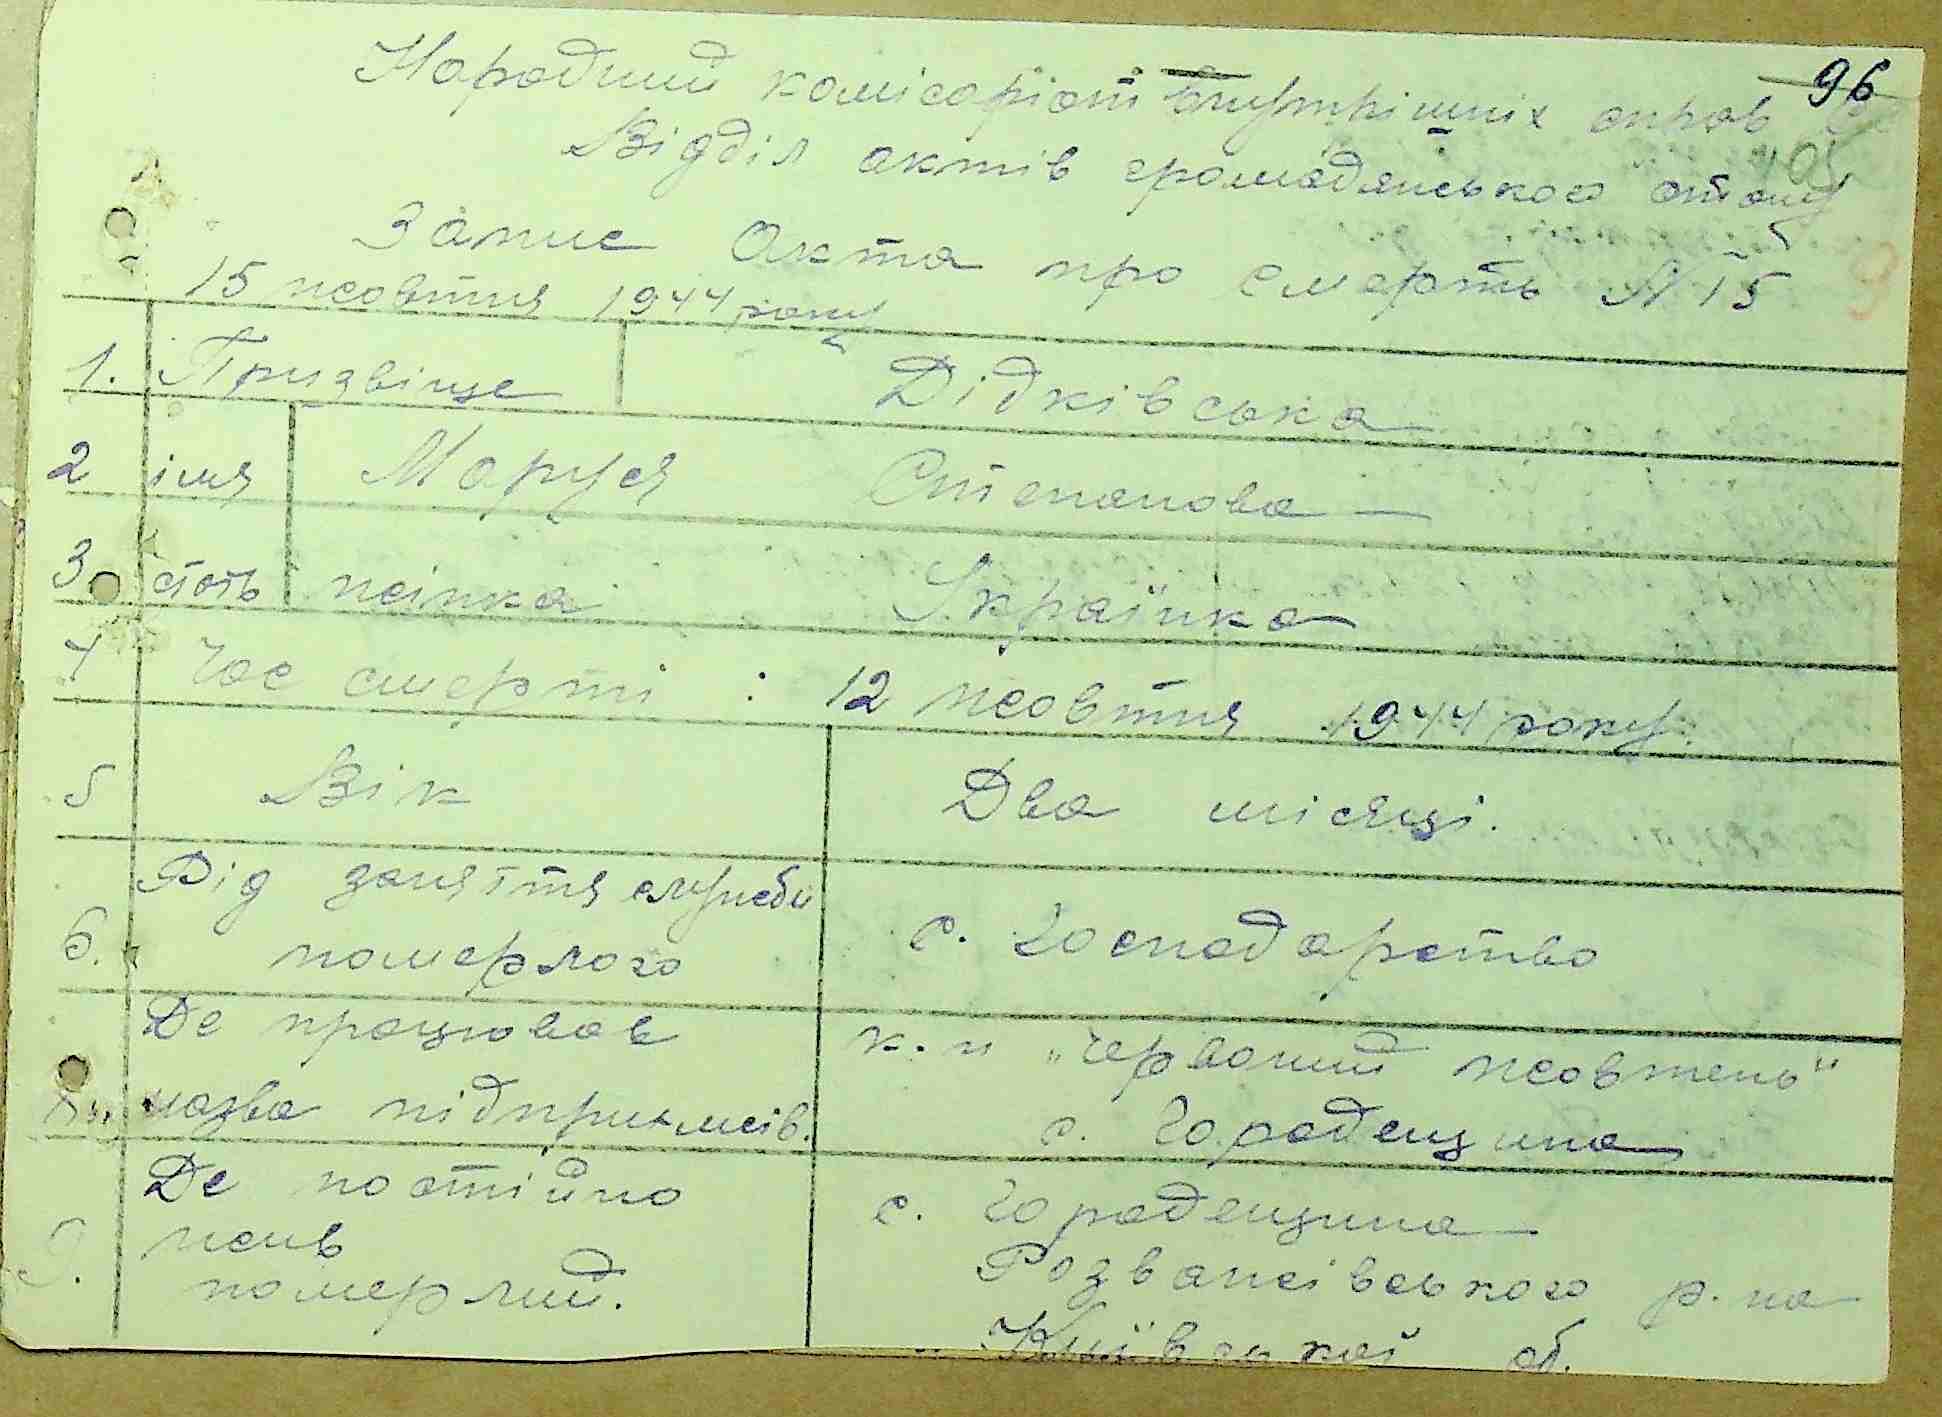 96
Народний комісаріат внутрішніх справ
Відділ актів громадянського стану
105
Запис Акта про смерть № 15
15 жовтня 1944 року
1. Призвіще Дідківська
2 імя Маруся Степанова —
3 стать жінка Українка
4 Час смерті : 12 жовтня 1944 року.
5 Вік Два місяці.
6. Рід заняття служби
померлого
с. господарство
Де працював
назва підприємсів.
к. п „Червоний жовтень"
с. Городещина
9. Де постійно
жив
померлий.
с. Городещина
Розважівського р. на
Київської об.